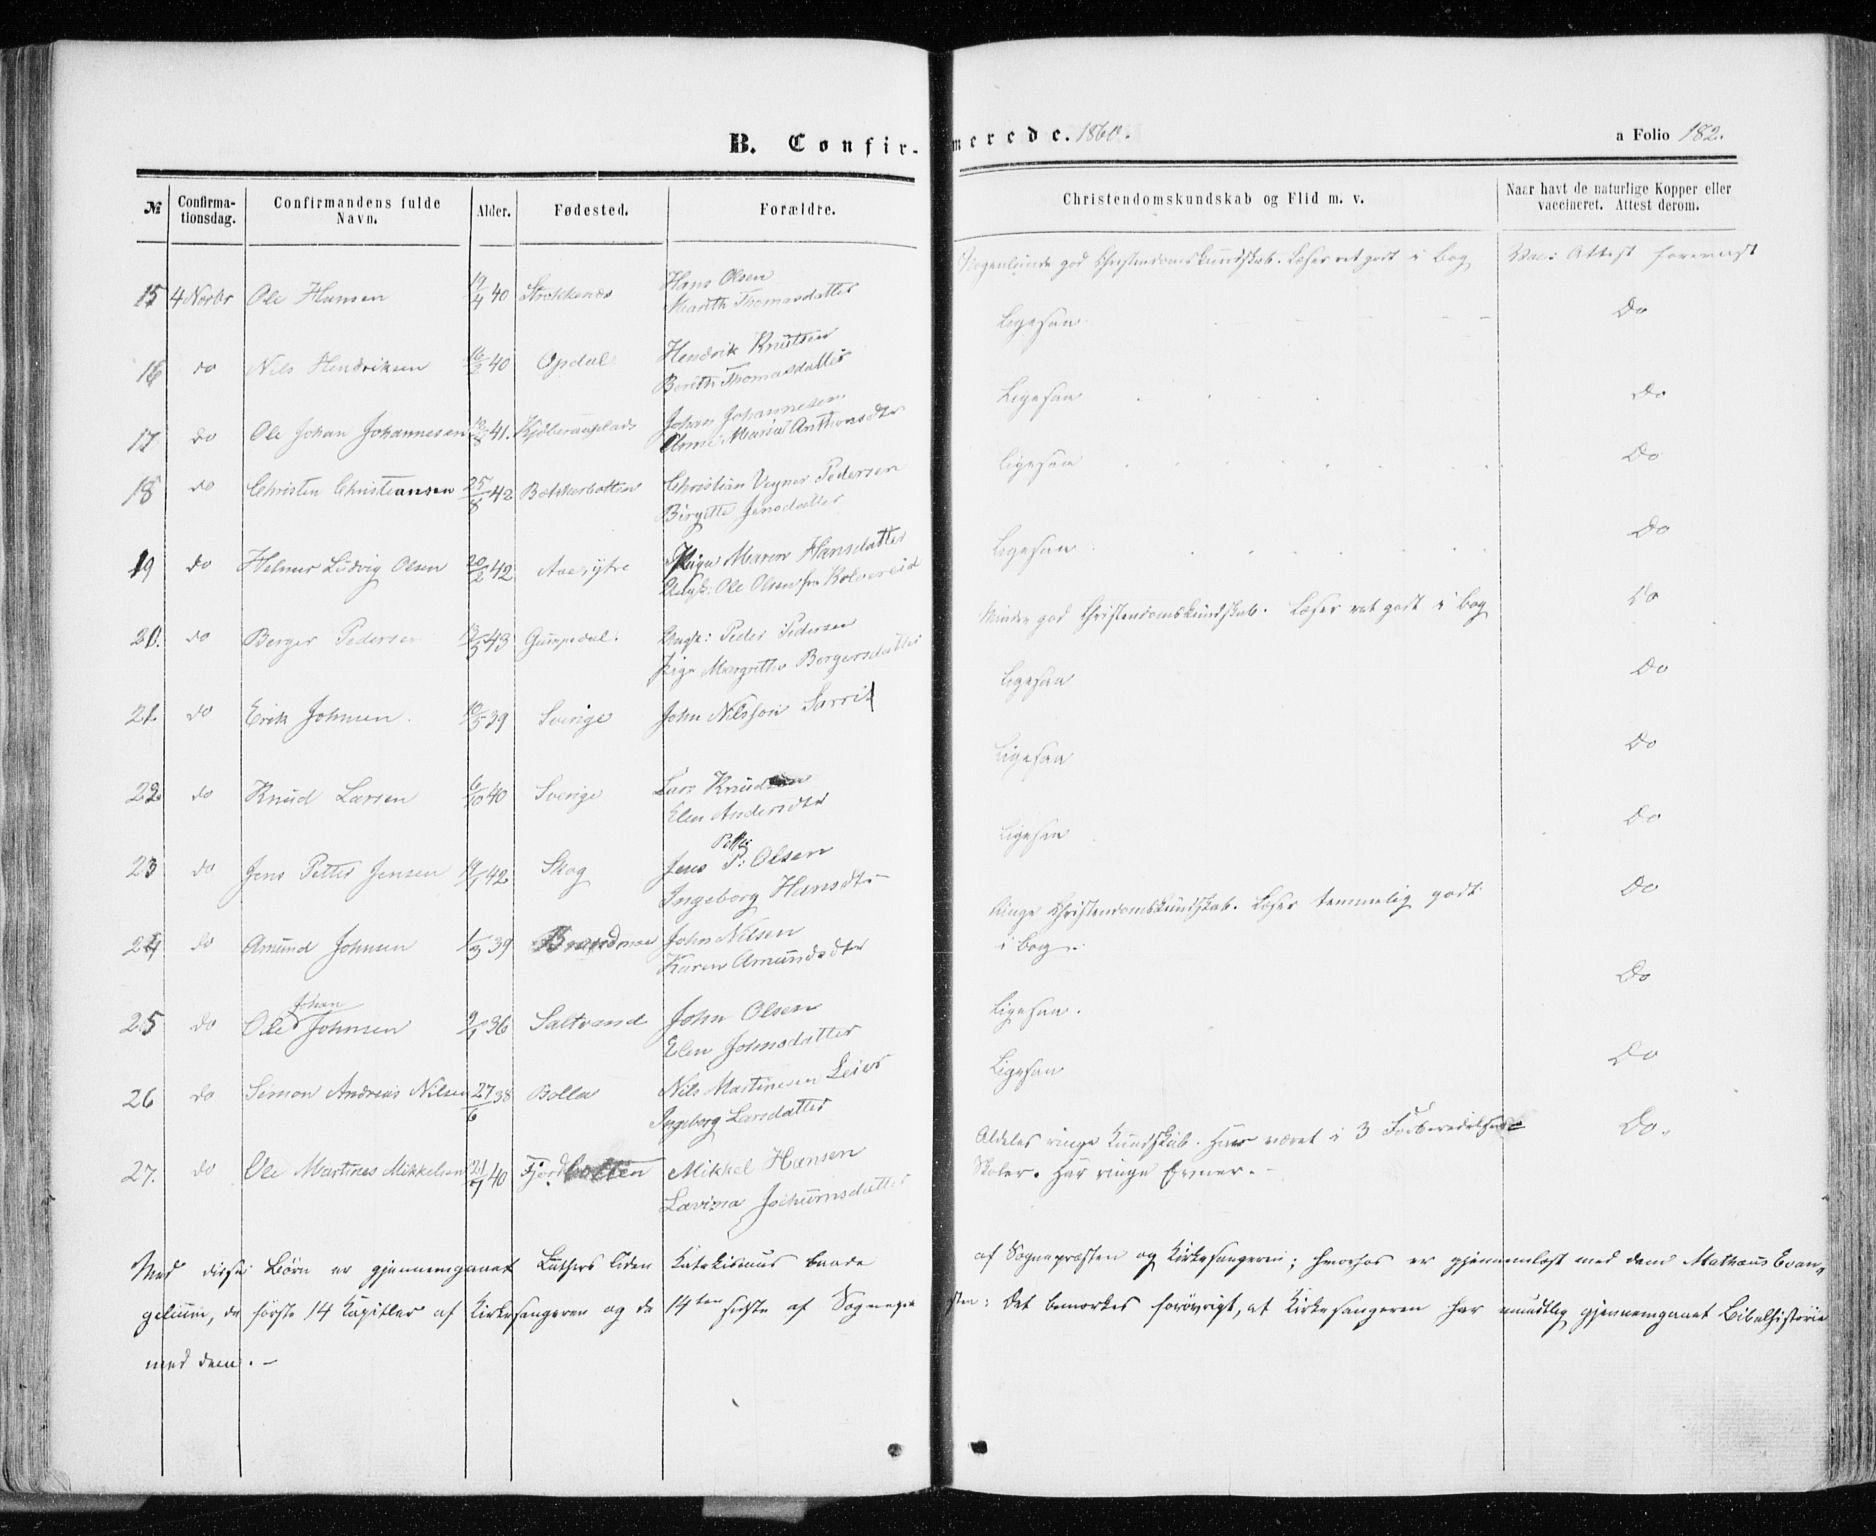 B. Confirmerede. 1860.
a Folio 182.
№ Confirmationsdag. Confirmandens fulde Navn. Alder. Fødested. Forældre. Christendomskundskab og Flid m. v. Naar havt de naturlige Kopper eller vaccineret. Attest derom.
15 4 Novbr Ole Hansen 19/4 40 Hans Olsen Nogenlunde god Christendomskundskab. Læser ret godt i Bog Vac: Attest foreviist
Marith Thomasdatter
16 do Nils Hendriksen 40 Opdal Hendrik Knutsen Ligesaa Do
Berith Thomasdatter
17 do Ole Johan Johannesen 41. Johan Johannesen Ligesaa Do
Anne Maria Anthonsdtr
18 do Christen Christiansen 25/8 42 Bækkerbotten Christian Vegner Pedersen Ligesaa Do
Birgitte Jensdatter
19 do Helmer Ludvig Olsen 20/2 42 Pige Maren Hansdatter Ligesaa Do
Ungk: Ole Olsen fra Kolvereid
20. do Berger Pedersen 43 Ungk: Peder Pedersen Mindre god Christendomskundskab. Læser ret godt i Bog Do
Pige Margrethe Bergersdatter
21. do Erik Johnsen. 39 Sverige John Nilsson Sarri Ligesaa Do
22. do Knud Larsen 6/10 40 Sverige Lars Knudsen Ligesaa Do
Elen Andersdtr
23 do Jens Petter Jensen 19/1 42 Skog Jens Petter P: Olsen Ligesaa Do
Ingeborg Hansdtr
24 do Amund Johnsen 1/3 39 John Nilsen Ringe Christendomskundskab. Læser temmelig godt Do
Karen Amundsdtr i Bog.
25 do Ole Johan Johnsen 9/1 36 Saltvand John Olsen Ligesaa. Do
Elen Johnsdatter
26 do Simon Andreas Nilsen 27/6 38 Bolla Nils Martinesen Leier Ligesaa Do
Ingeborg Larsdatter
27. do Ole Martines Mikkelsen 21/7 40 Fjordbotten Mikkel Hansen Aldeles ringe Kundskab. Har været i 3 Forberedelses- Do.
Lavina Jochumsdatter Skoler. Har ringe Evner. -
Med disse Børn er gjennemgaaet Luthers liden Katekismus baade af Sognepræsten og Kirkesangeren; hvorhos er gjennemlæst med dem Mathæus Evan-
gelium, de første 14 Kapitler af Kirkesangeren og de 14 ten sidste af Sognepræsten: Det bemærkes forøvrigt, at Kirkesangeren har mundtlig gjennemgaaet Bibelhistorie
med dem. -